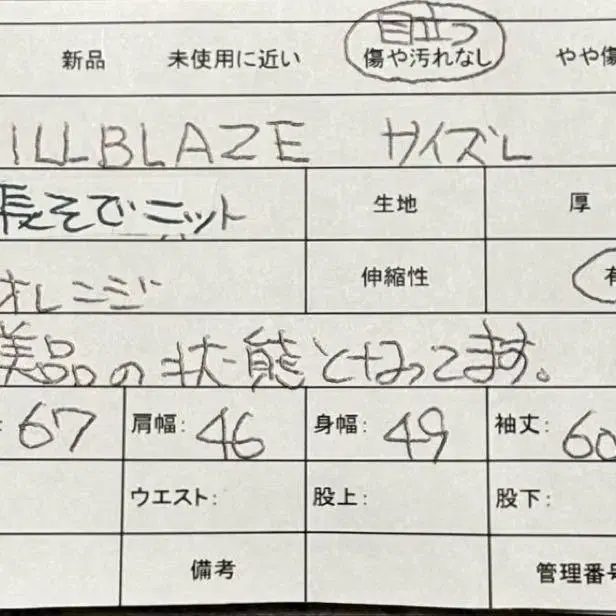 新品 未使用に近い 目立つ傷や汚れなし やや傷
ILLBLAZE サイズL
長そでニット 生地 厚
オレンジ 伸縮性 有
美品の状態となってます。
: 67 肩幅: 46 身幅: 49 袖丈: 60
ウエスト: 股上: 股下:
備考 管理番号